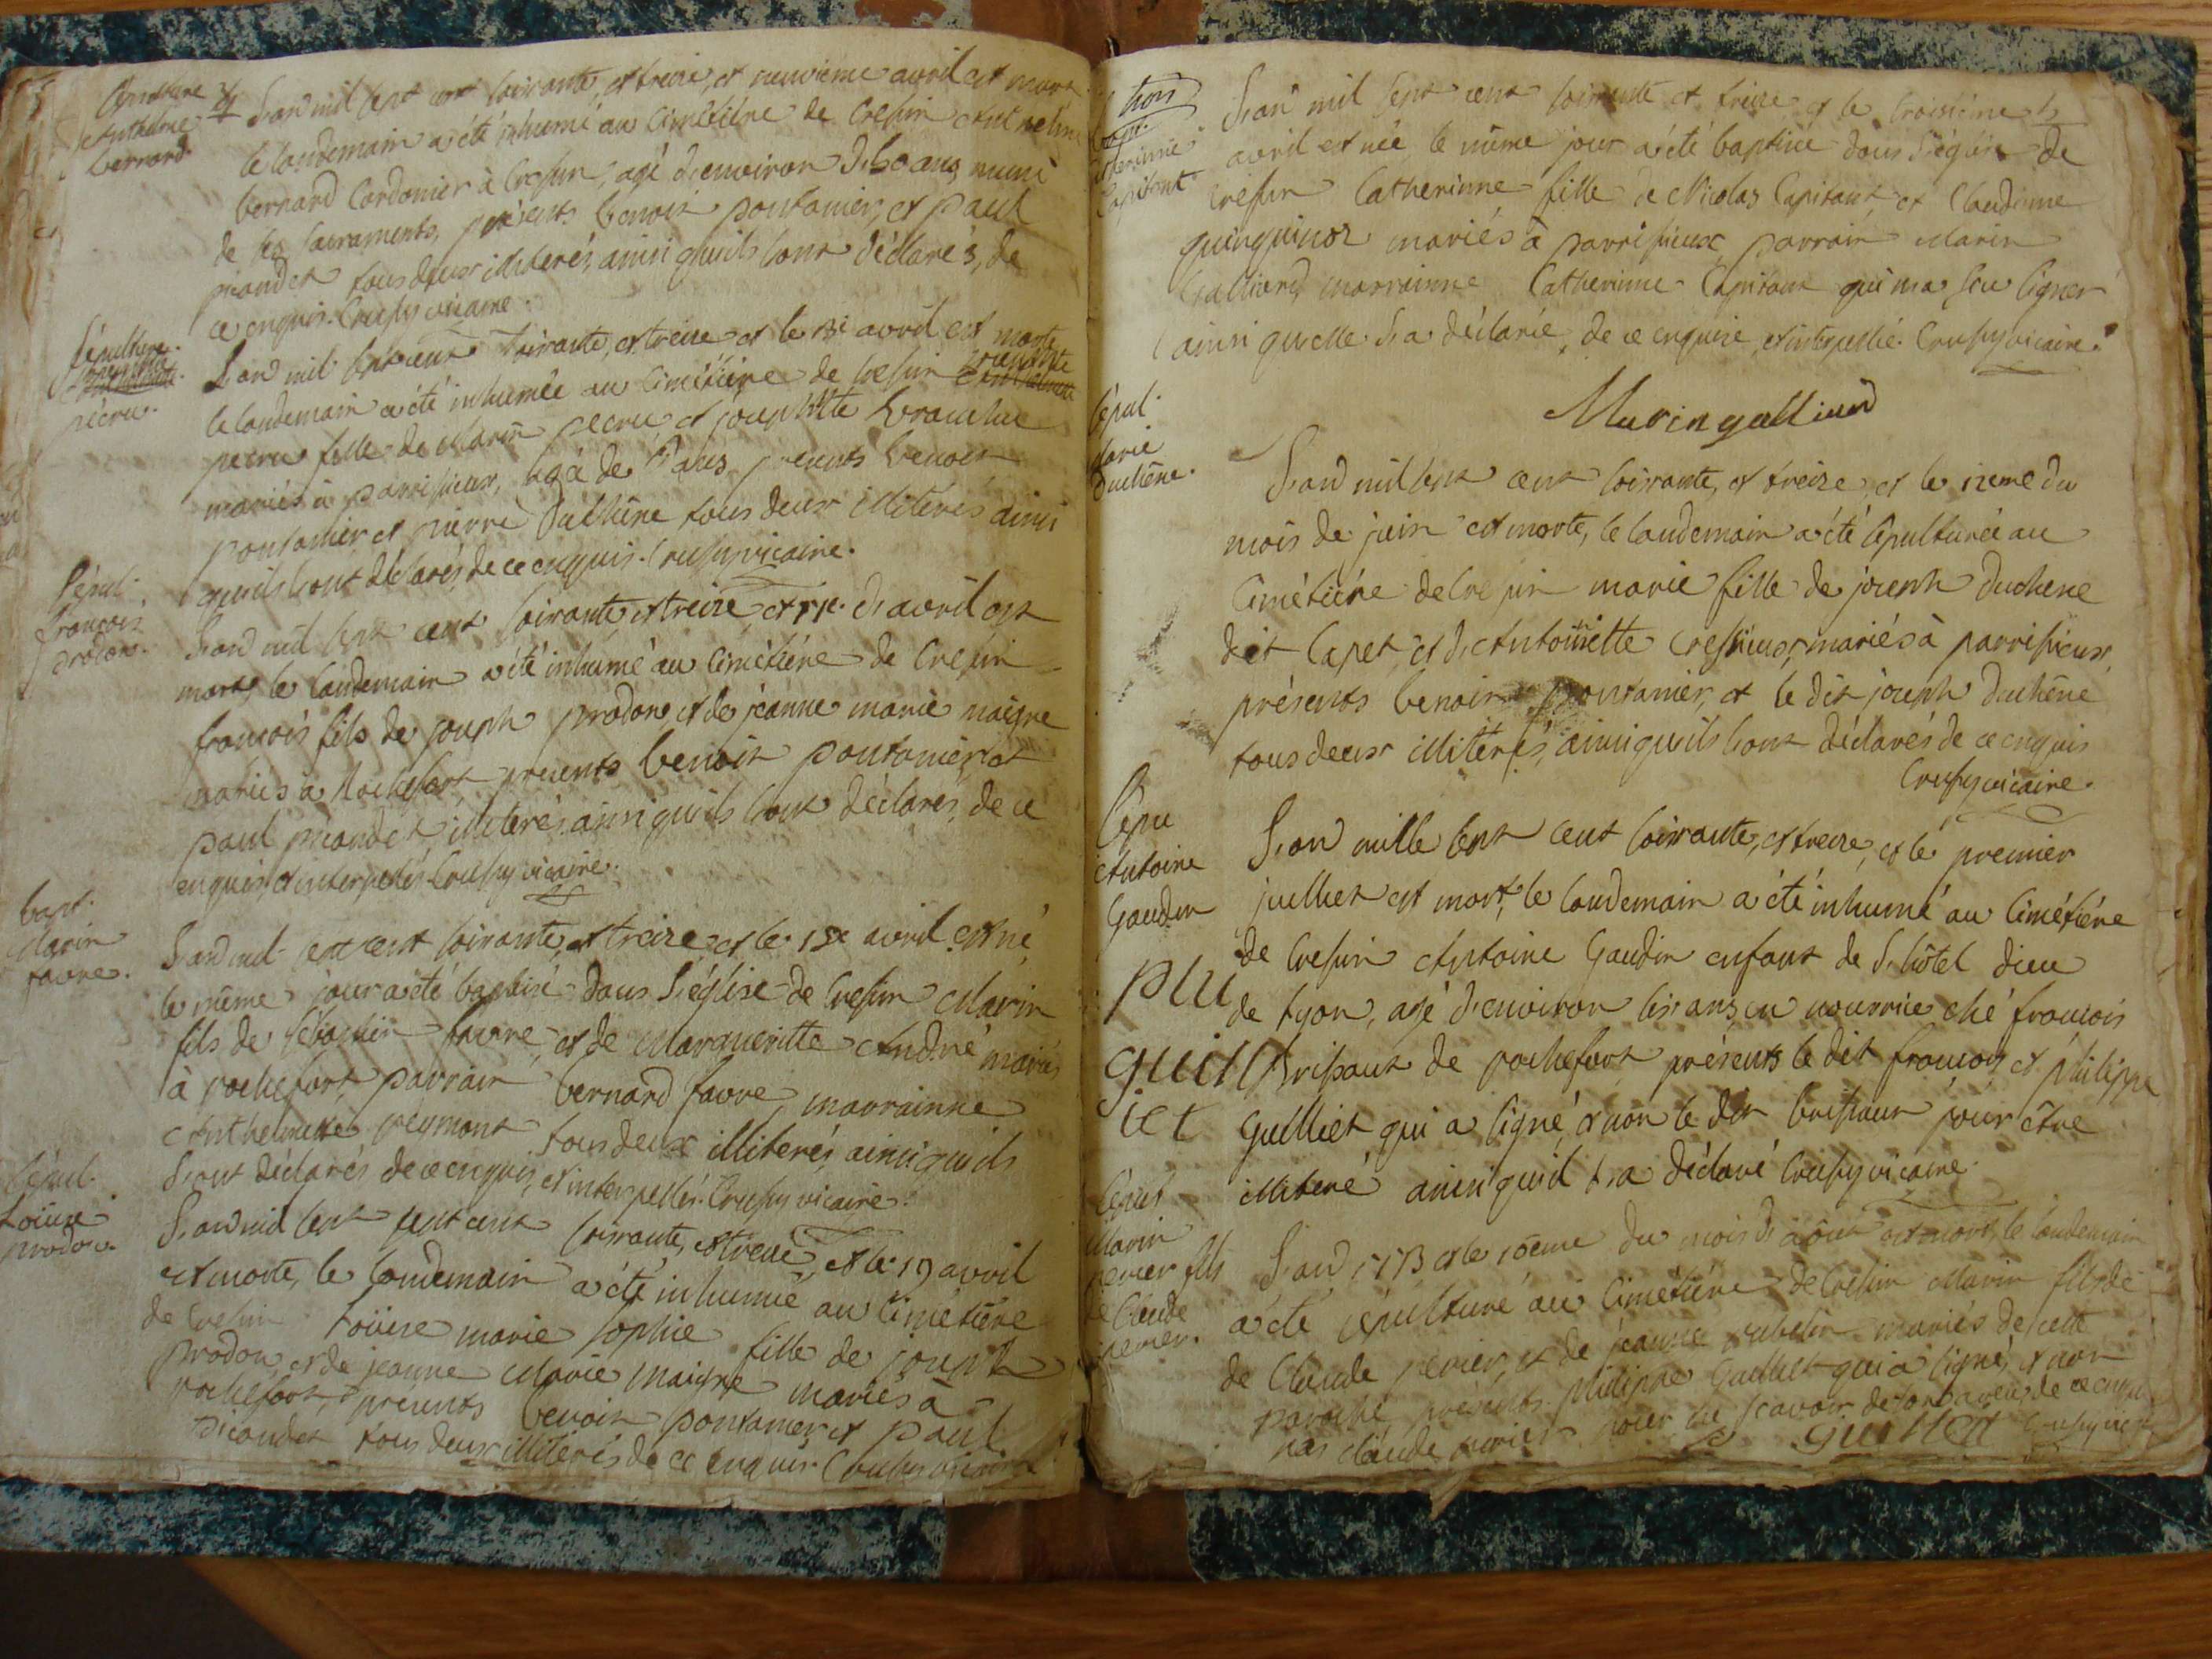 Sepulture
Anthelme
bernard.
L'an mil sept cent soixante, et treize, et neuvieme avril est mort
le landemain a été inhumé au cimétiére de Cressin Anthelme
bernard Cordonier à Cressin, agé d'environ 60 ans, muni
de ses sacraments, présents benoit pontanier, et paul
picandet tous deux illiterés, ainsi qu'ils l'ont déclarés, de
ce enquis. Crussy vicaire.
Sépulture.
pécru.
L'an mil sept cent soixante, et treize et le avril est morte
le landemain a été inhumée au cimétiére de Cressin
pecru fille de Marin pecru et josephte
mariés à parrissieux, agé de ans, présents benoit
pontanier et pierre Duchêne tous deux illiterés ainsi
qu'ils l'ont déclarés, de ce enquis. Crussy vicaire.
Sépul.
françois
prodon.
L'an mil sept cent soixante, et treize et d'avril est
mort, le landemain a été inhumé au cimétiére de Cressin
françois fils de joseph prodon, et de jeanne marie maigre
mariés à Rochefort, présents benoit pontanier, et
paul picandet, illiterés, ainsi qu'ils l'ont déclarés, de ce
enquis, et interpellés. Crussy vicaire.
bapt.
Marin
favre.
L'an mil sept cent soixante, et treize, et le avril est né,
le même jour a été baptisé dans l'église de Cressin Marin
fils de sébastien favre, et de Margueritte André mariés
à rochefort, parrain bernard favre, marrainne
Anthelmette reymont tous deux illiterés, ainsi qu'ils
l'ont déclarés de ce enquis, et interpellés. Crussy vicaire.
Sépul.
Loüise
prodon.
L'an mil sept cent soixante, et treize, et le 19 avril
est morte, le landemain a été inhumée au cimétiére
de Cressin Loüise marie sophie fille de joseph
prodon, et de jeanne Marie maigre mariés à
rochefort, présents benoit pontanier, et paul
picandet tous deux illiterés de ce enquis. Crussy vicaire
Catherinne
Capitant
L'an mil sept cent soixante et treize et le troisiéme
avril est née le même jour a été baptisée dans l'église de
Cressin Catherinne fille de Nicolas Capitant et Claudinne
quinquinot mariés à parrissieux, parrain Marin
Galliard marrainne Catherinne Capitant qui n'a sçu signer
ainsi qu'elle l'a déclarée, de ce enquise, et interpellée. Crussy vicaire.
Marin galliard
Sépul.
Marie
Duchêne.
L'an mil sept cent soixante, et treize, et le 12eme du
mois de juin est morte, le landemain a été sépulturée au
Cimétiére de Cressin marie fille de joseph duchene
dit Capet, et d'Antoinette Cressieux, mariés à parrissieux,
présents benoit pontanier, et le dit joseph Duchêne
tous deux illiterés, ainsi qu'ils l'ont déclarés de ce enquis
Crussy vicaire.
Sepu
Antoine
Gaudin
L'an mille sept cent soixante, et treize, et le premier
juillet est mort, le landemain a été inhumé au Cimétiére
de Cressin Antoine Gaudin enfant de l'hôtel dieu
de Lyon, agé d'environ six ans, en nourrice ché françois
Brissaut de rochefort présents le dit françois et philippe
Guilliet qui a signé, et non le dit brissaut pour être
illiteré ainsi qu'il l'a déclaré Crussy vicaire.
Phi
guill
iet
Sépul
Marin
perier fils
de Claude
perier.
L'an 1773 et le 10eme du mois d'août est mort, le landemain
a été sépulturé au Cimétiére de Cressin Marin fils de
de Claude perier, et de jeanne mariés de cette
paroché, présents philippe Guilliet qui a signé, et non
pas claude perier pour ne scavoir de son aveu, de ce enquis
guilliet Crussy vicaire